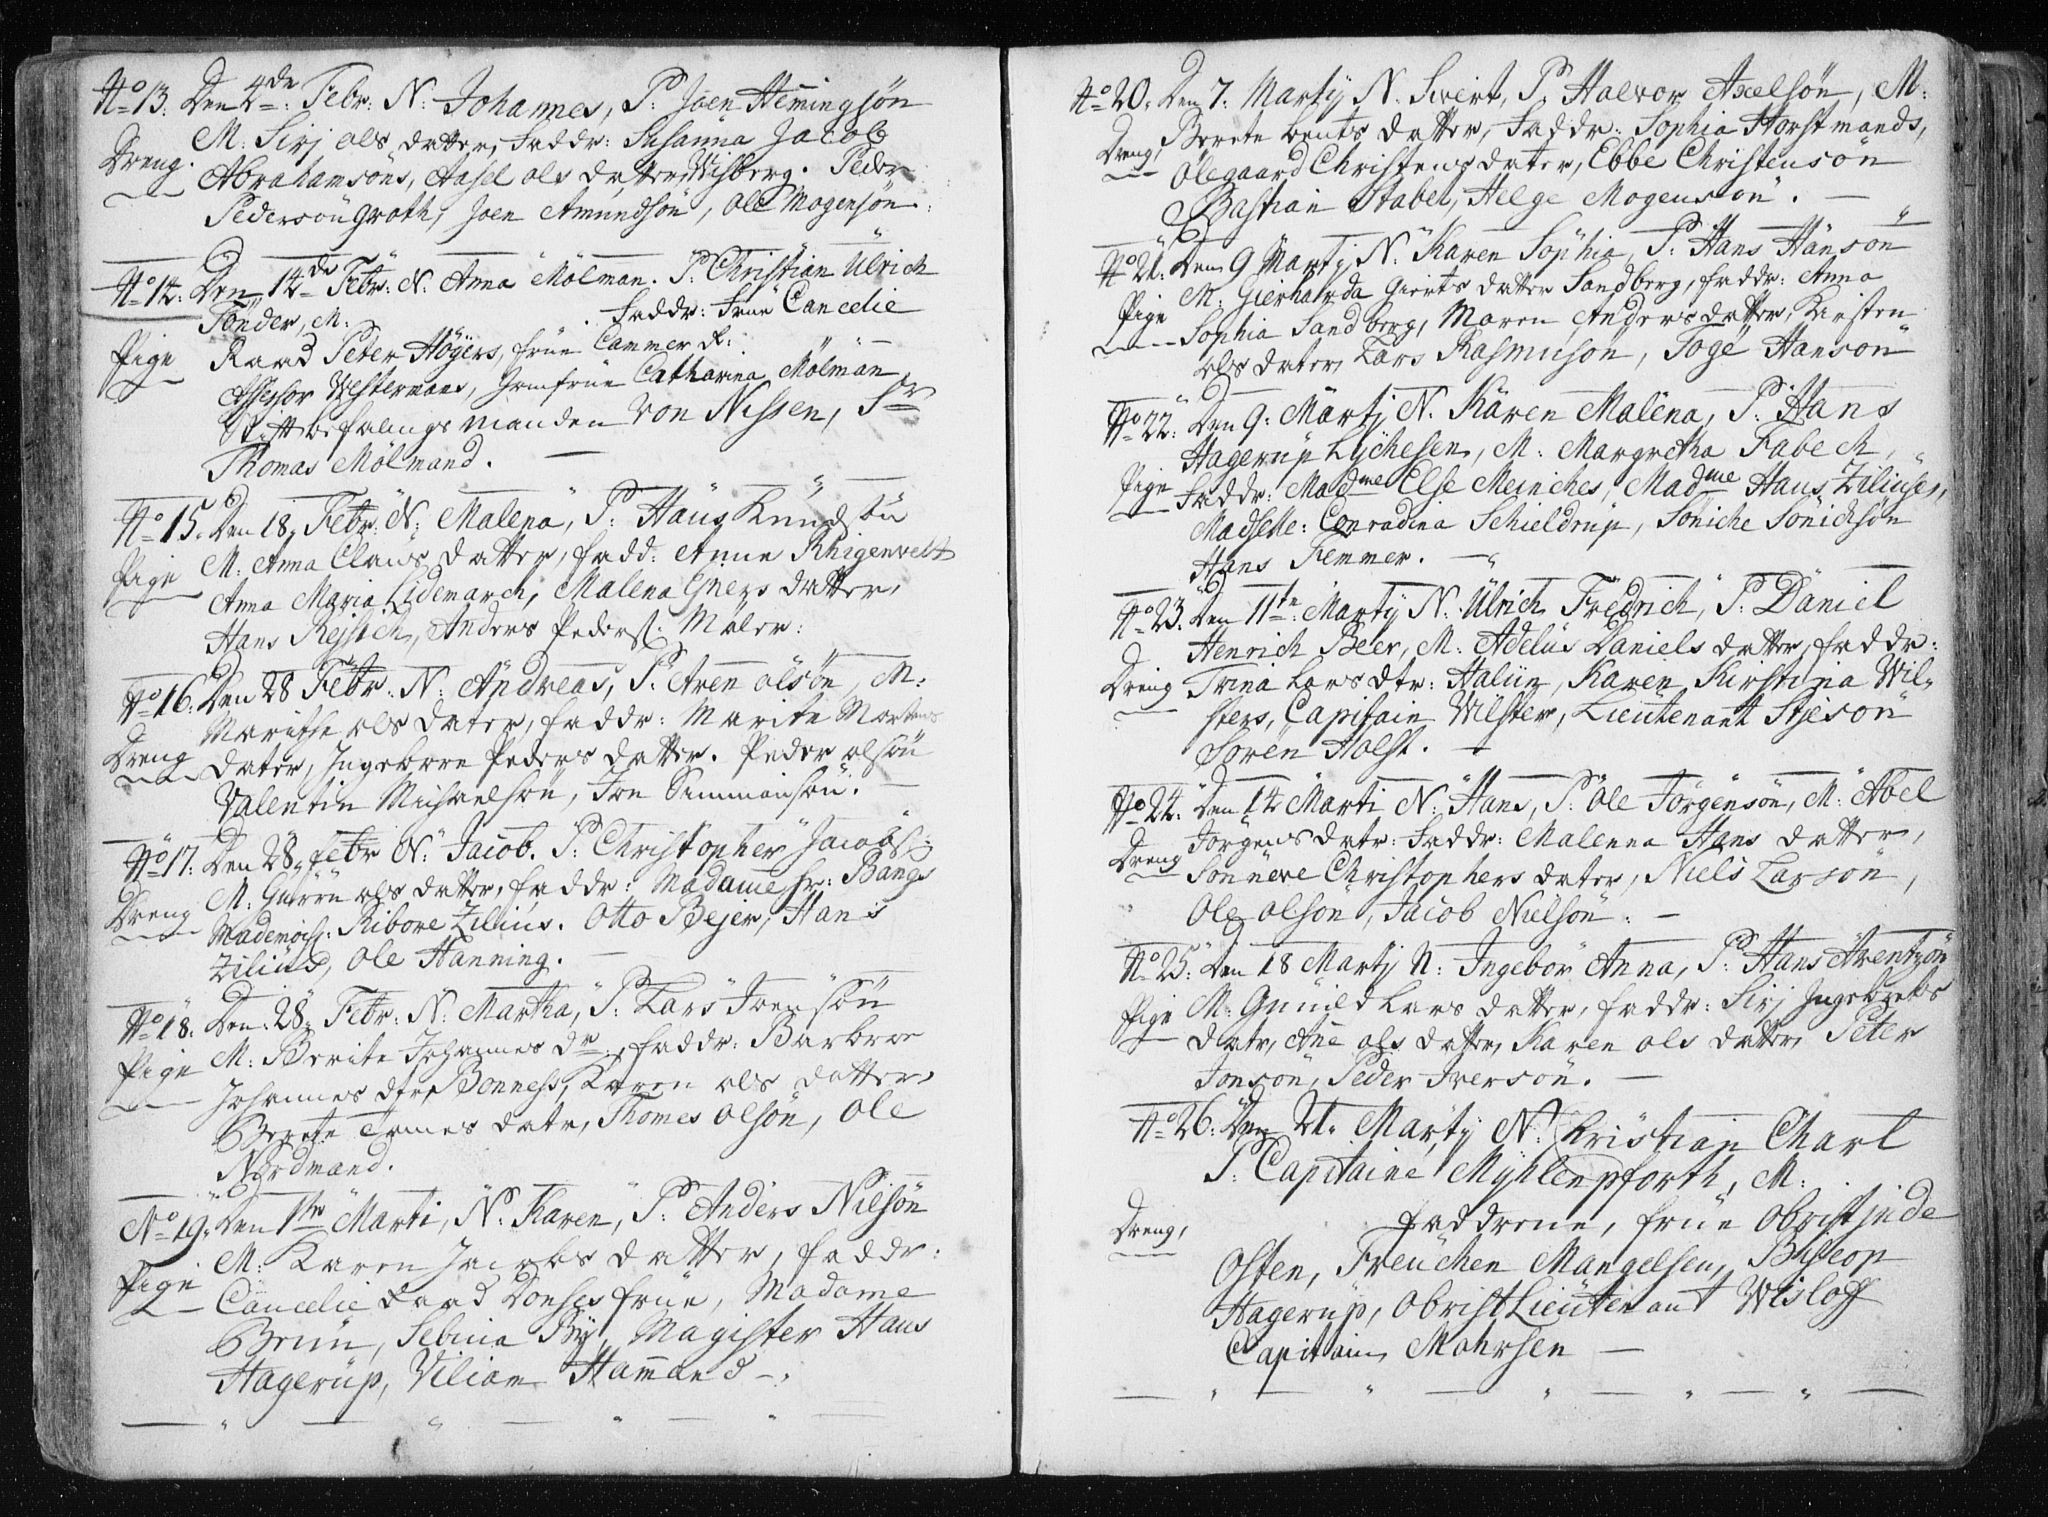 No 13. Den 4de: Febr: N: Johannes, P: Joen Hemingsøn
Dreng. M. Sirj ols datter, Faddr: Susanna Jacob
Abrahamsøns, Aasel ols datter Wisberg. Peder
Pedersøn Groth, Joen Amundsøn, Ole Mogensøn.
No 14: Den 14de Febr: N. Anna Mølman. P: Christian Ulrich
Tønder, M: Faddr: Frue Cancelie
Pige Raad Peter Høyers, frue Cammer R:
Assessor Westermans, Jomfrue Catharina Mölman,
Stiftbefalingsmanden von Nissen, Sr
Thomas Mölmand.
No 15. Den 18. Febr: N: Malena, P: Hans Knudsøn
Pige M: Anna Claus datter, fadd: Anne Rhigervelt
Anna Maria Lidemarck, Malena Eners datter,
Hans Rejsich, Anders Peders: Maler:
No 16: Den 28 Febr: N: Andreas, P: Aren olsøn, M:
Marithe ols dater, faddr: Marite Mortens
Dreng dater, Ingeborre Peders datter. Peder olsøn
Valentin Michaelsøn, Jon Simmonsøn.
No 17: Den 28. febr N: Jacob. P: Christopher Jacobs:
Dreng M: Guren ols datter, faddr: Madame Hr: Bangs
Mademois: Ribore Zilius. Otto Bejer, Hans
Zilius, Ole Hanning.
No 18: Den: 28. Febr: N: Martha, P: Lars Joensøn
Pige M: Berite Johannes dr, faddr: Barbroe
Johannes dtr Bonness, Karen ols datter,
Berete Tomes datr, Thomes olsøn, Ole
Nordmand.
No 19: Den 1ste Marti, N: Karen, P: Anders Nilsøn
Pige M: Karen Jacobs datter, faddr:
Cancelie Raad Donses frue, Madame
Brun, Sebina By, Magister Hans
Hagerup, Viliam Hammond.
No 20. Den 7. Martj N: Sivert, P. Halvor Axelsøn, M:
Dreng, Berete bents datter, Faddr: Sophia Horstmands,
Olegaard Christens dater, Ebbe Christensøn
Bastian Stabel, Helge Mogensøn.
No 21: Den 9 Martj N: Karen Sophia, P: Hans Hansøn
Pige M: Gierharda Gierts datter Sandberg, faddr: Anna
Sophia Sandberg, Maren Anders datter, Kirsten
ols dater, Lars Rasmusøn, Toge Hansøn
No 22: Den 9: Martj N. Karen Malena, P: Hans
Hagerup Lychesen, M: Margretha Fabech,
Pige Faddr: Madme Else Meinches, Madme Hans Zilius,
Madselle: Conradina Schieldrup, Søniche Sønichsøn
Hans Femmer.
No 23. Den 11te: Martj N: Ulrich Fredrich, P: Daniel
Henrich Beer, M: Adelus Daniels datter, faddr:
Dreng Trina Lars dtr: Halun, Karen Kirstina Wil-
sters, Capitain Wilster, Lieutenant Stjesøn
Søren Holst.
No 24: Den 14 Marti N: Hans, P: Ole Jørgensøn, M: Abel
Dreng Jørgens datr: Faddr: Malenna Hans datter,
Sønneve Christophers dater, Niels Larsøn,
Ole olsøn, Jacob Nielsøn.
No 25: Den 18 Martj N: Ingebor Anna, P: Hans Arentzøn
Pige M: Gunild Lars datter, faddr: Sirj Ingebrets
datr, Ane ols datter, Karen ols datter, Peter
Jonsøn, Peder Iversøn.
No 26: Den 21. Martj N: Kristian Charl
P: Capitaine Myhlenpforth, M:
Dreng, Faddrene, frue Obristinde
Osten, Freuchen Mangelsen, Biskop
Hagerup, Obristlieutenant Wisløff
Capitain Mohrsen